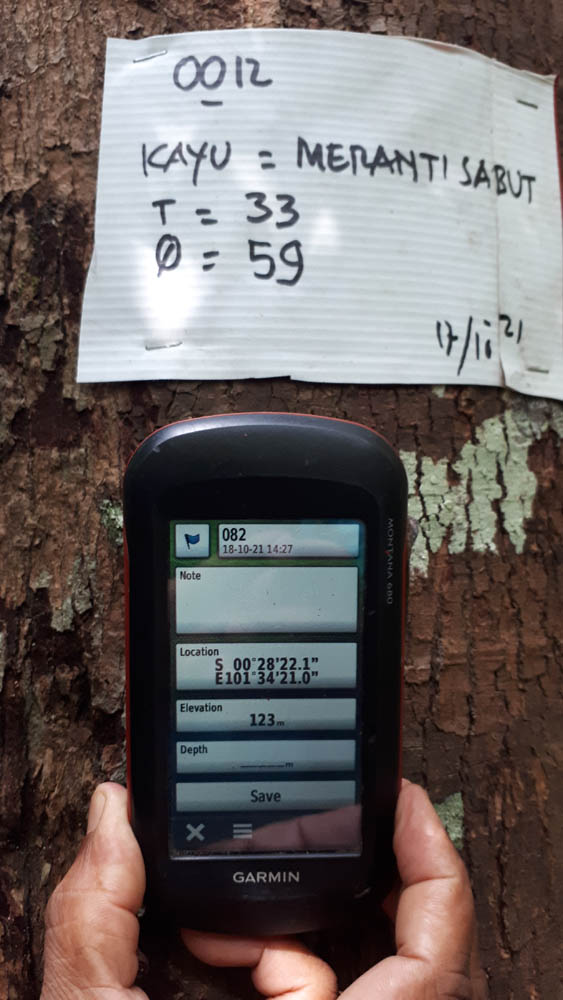 0012
KAYU = MERANTI SABUT
T = 33
Ø = 59
17/10 21
082
18-10-21 14:27
Note
Location
S 00°28'22.1"
E101°34'21.0"
Elevation
123 m
Depth
_____m
Save
GARMIN
MONTANA 680